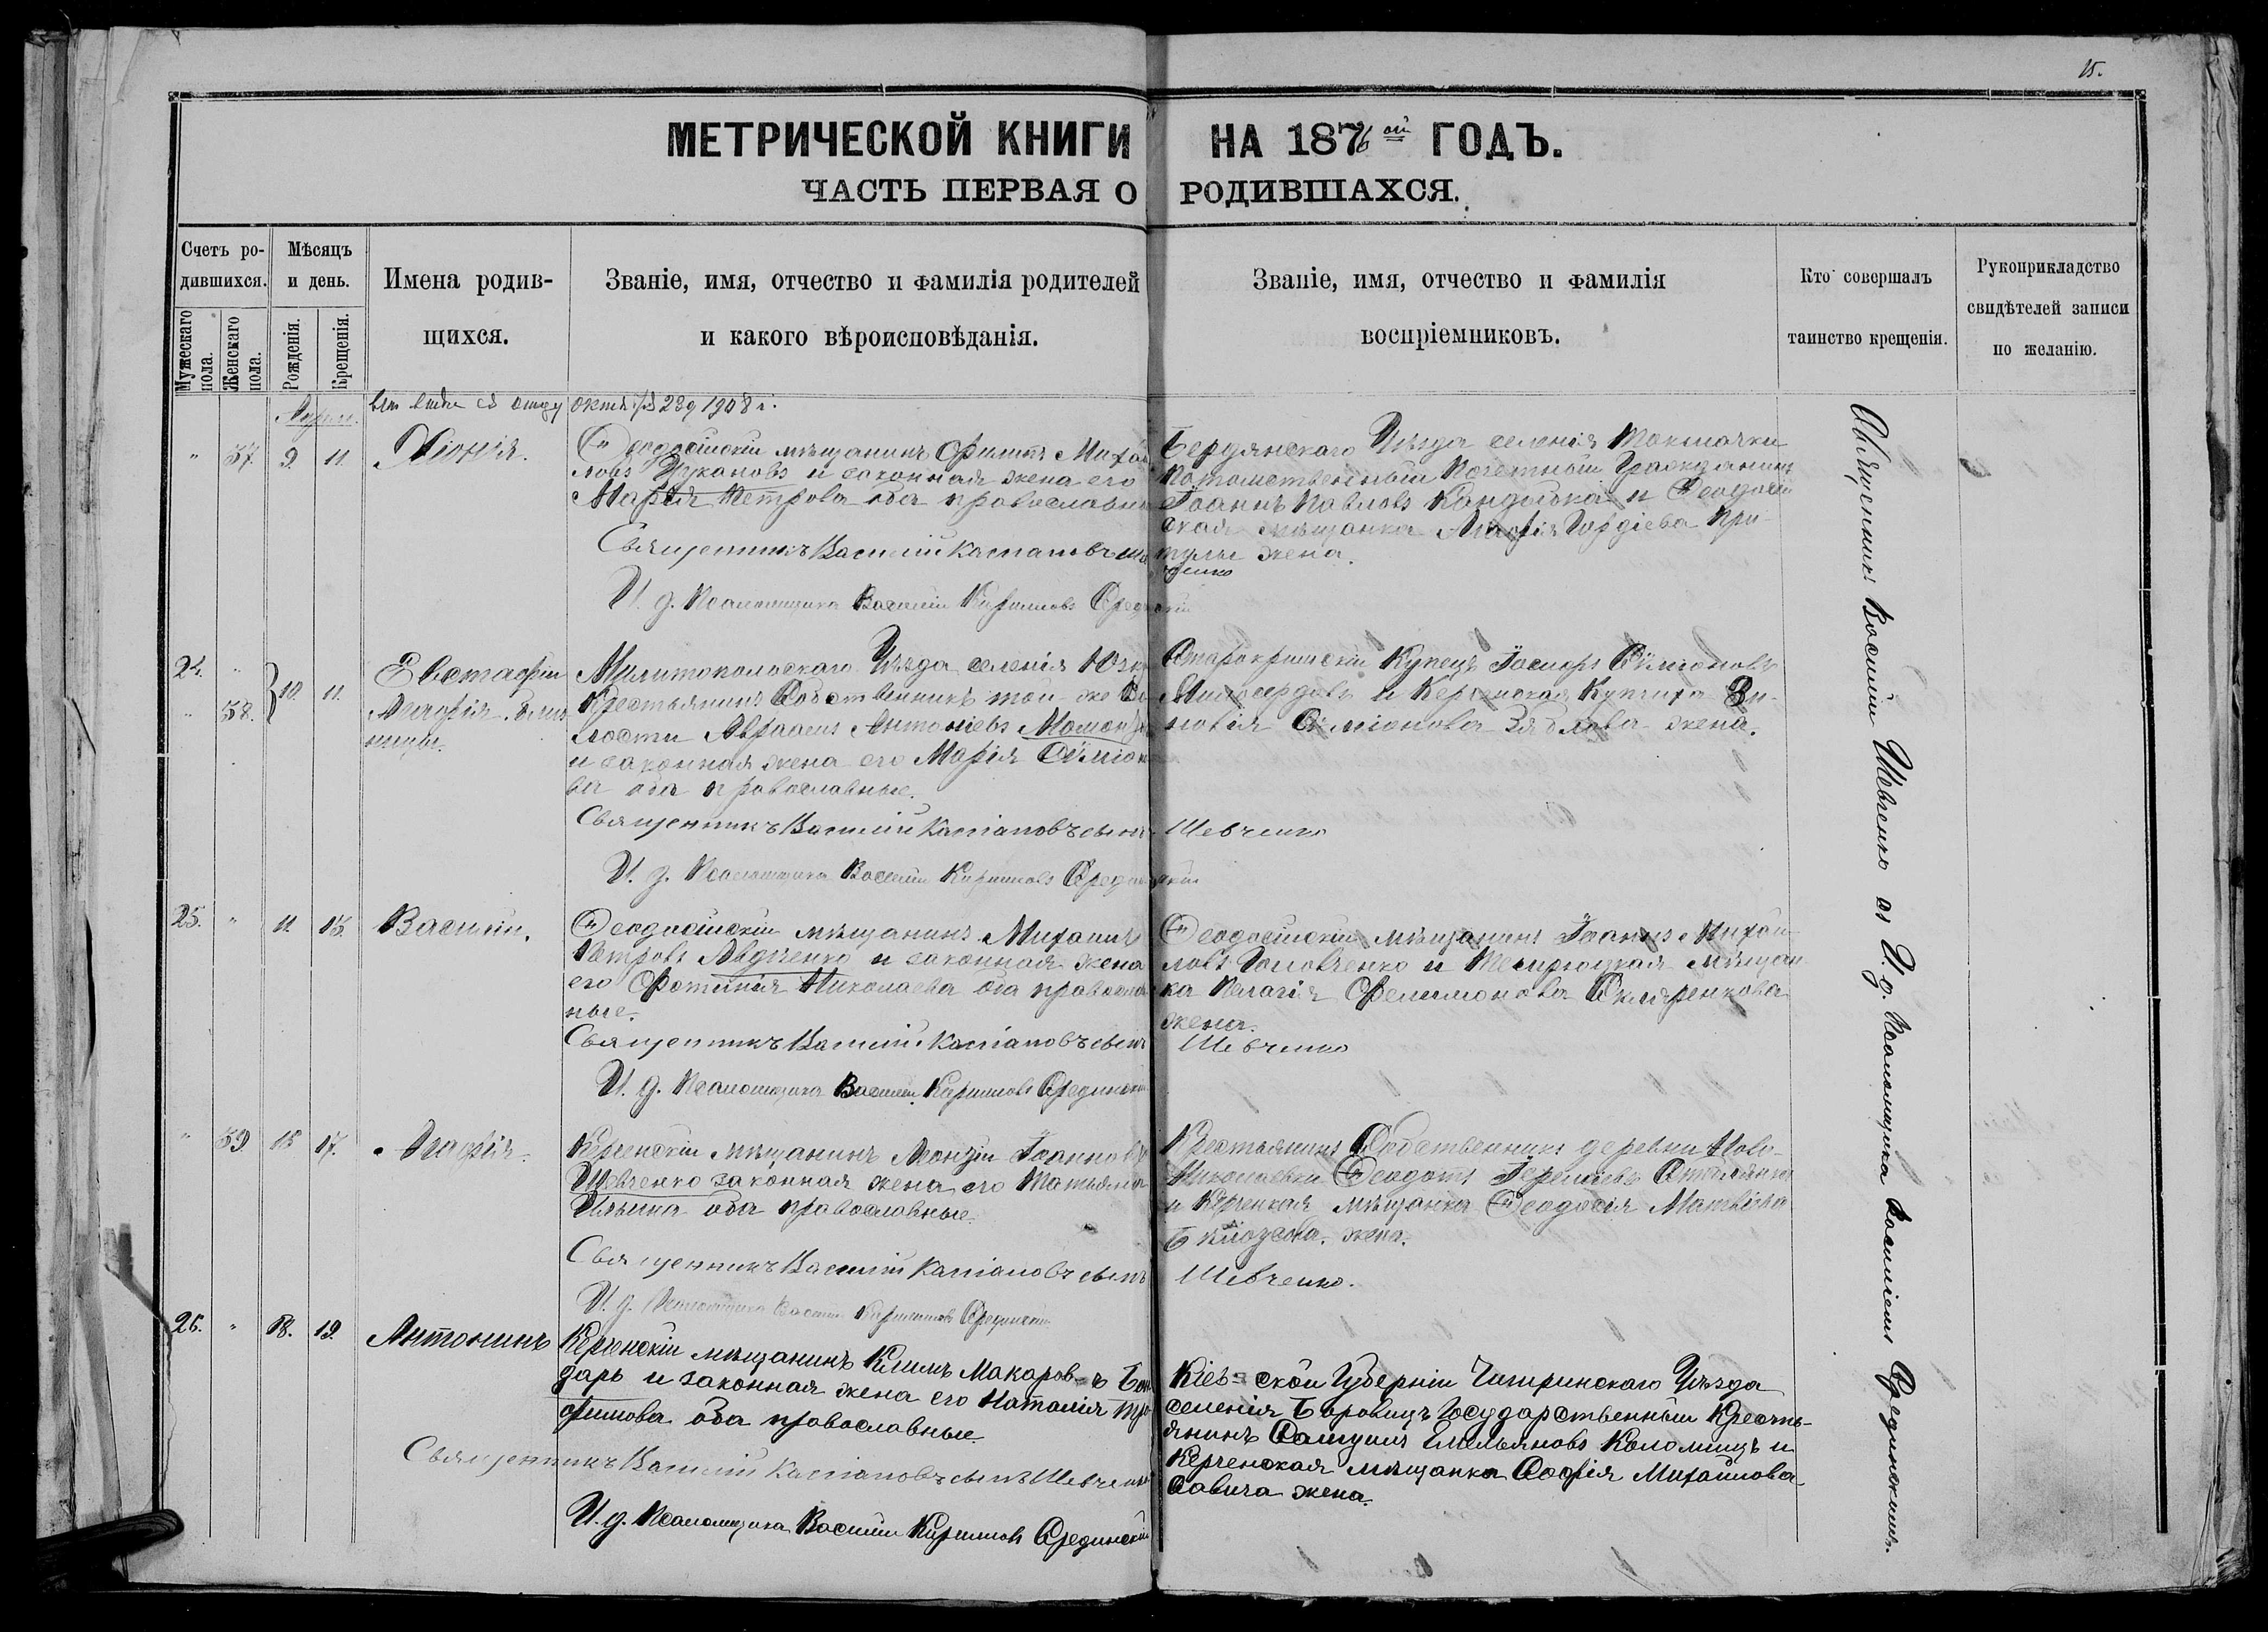 15.
МЕТРИЧЕСКОЙ КНИГИ НА 1876ой ГОДЪ.
ЧАСТЬ ПЕРВАЯ О РОДИВШАХСЯ.
Счетъ ро-
дившихся.
Мужескаго пола.
Женскаго пола.
Мѣсяцъ
и день.
Рожденія.
Крещенія.
Имена родив-
щихся.
Званіе, имя, отчество и фамилія родителей
и какого вѣроисповѣданія.
Званіе, имя, отчество и фамилія
воспріемниковъ.
Кто совершалъ
таинство крещенія.
Рукоприкладство
свидѣтелей записи
по желанію.
1908 г.
" 37. 9. 11. Хіонія.
Ѳеодосійскій мѣщанинъ Филипъ Михай
ловъ Цукановъ и законная жена его
Марія Петрова оба православные
Священникъ Василій Кассіановъ сынъ
И. д. Псаломщика Василій Кириловъ Срединскій
Бердянскаго Уѣзда селенія Токмачки
Потомственный Почетный Гражданинъ
Іоаннъ Павловъ Кандыбка и Ѳеодосій
ская мѣщанка Агафія Гордіева При-
тулы жена.
24. "
" 38.
10. 11.
Евстафій
близ
ницы.
Мелитопольскаго Уѣзда селенія
Крестьянинъ Собственникъ той же Во
лости Авраамъ Антоніевъ
и законная жена его Марія Сѵміоно
ва оба православные.
Священникъ Василій Кассіановъ сынъ Шевченко
И. д. Псаломщика Василій Кириловъ Срединскій
Старокрымскій Купецъ Іосифъ Сѵміоновъ
Милосердовъ и Керченская Купчиха Зи-
новія Сѵміонова Зяблова жена.
25. " 11. 15. Василій.
Ѳеодосійскій мѣщанинъ Михаилъ
Петровъ Авдѣенко и законная жена
его Фотинія Николаева оба православ
ные.
Священникъ Василій Кассіановъ сынъ Шевченко
И. д. Псаломщика Василій Кириловъ Срединскій
Ѳеодосійскій мѣщанинъ Іоаннъ Михай-
ловъ Головченко и Темрюцкая мѣщан
ка Пелагія Филимонова Скляренкова
жена.
" 39. 15 17. Агафія.
Керченскій мѣщанинъ Леонтій Іоанновъ
Шевченко законная жена его Татьяна
Ильина оба православные.
Священникъ Василій Кассіановъ сынъ Шевченко.
И. д. Псаломщика Василій Кириловъ Срединскій
Крестьянинъ Собственникъ деревни Ново-
Николаевки Ѳеодотъ
и Керченская мѣщанка Ѳеодосія Матвѣева
жена.
26. " 18. 19. Антонинъ
Керченскій мѣщанинъ Климъ Макаров-ъ Бон
дарь и законная жена его Наталія Тро
фимова оба православные.
Священникъ Василій Кассіановъ сынъ Шевченко
И. д. Псаломщика Василій Кириловъ Срединскій
Кіев=ской Губерніи Чигиринскаго Уѣзда
селенія Боровицъ Государственный Кресть-
янинъ Самуилъ Емельяновъ Коломіецъ и
Керченская мѣщанка Софія Михайлова
Савича жена.
Священникъ Василій Шевченко съ И. д. Псаломщика Василіемъ Срединскимъ.